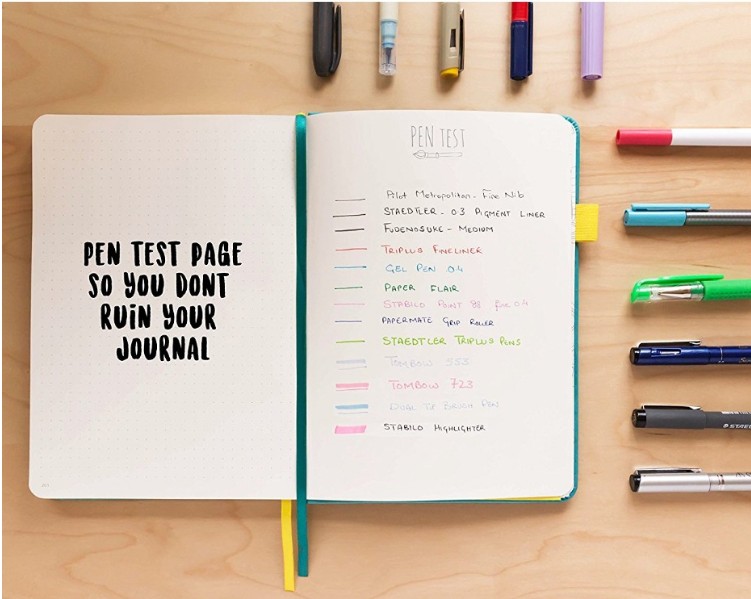 PEN TEST PAGE
SO YOU DONT
RUiN YOUR
JOURNAL
PEN TEST
Pilot Metropolitan - Fine Nib
STAEDTLER - 03 PIGMENT LINER
FUDENOSUKE - MEDIUM
TRIPLUS FINELINER
GEL PEN 04
PAPER FLAIR
STABILO POINT 88 0.4
PAPERMATE GRIP ROLLER
STAEDTLER TRIPLUS PENS
TOMBOW 553
TOMBOW 723
DUAL BRUSH PEN
STABILO HIGHLIGHTER